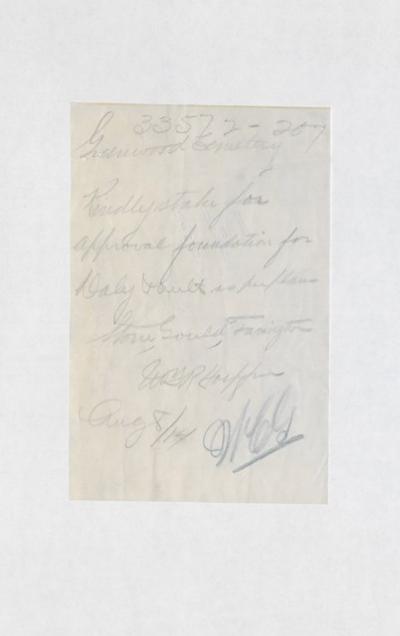 33572-207
Greenwood Cemetery
Kindly stake for
approval foundation for
Daly Vault as per plans
Stone, Gould, Farrington
Aug 8/14